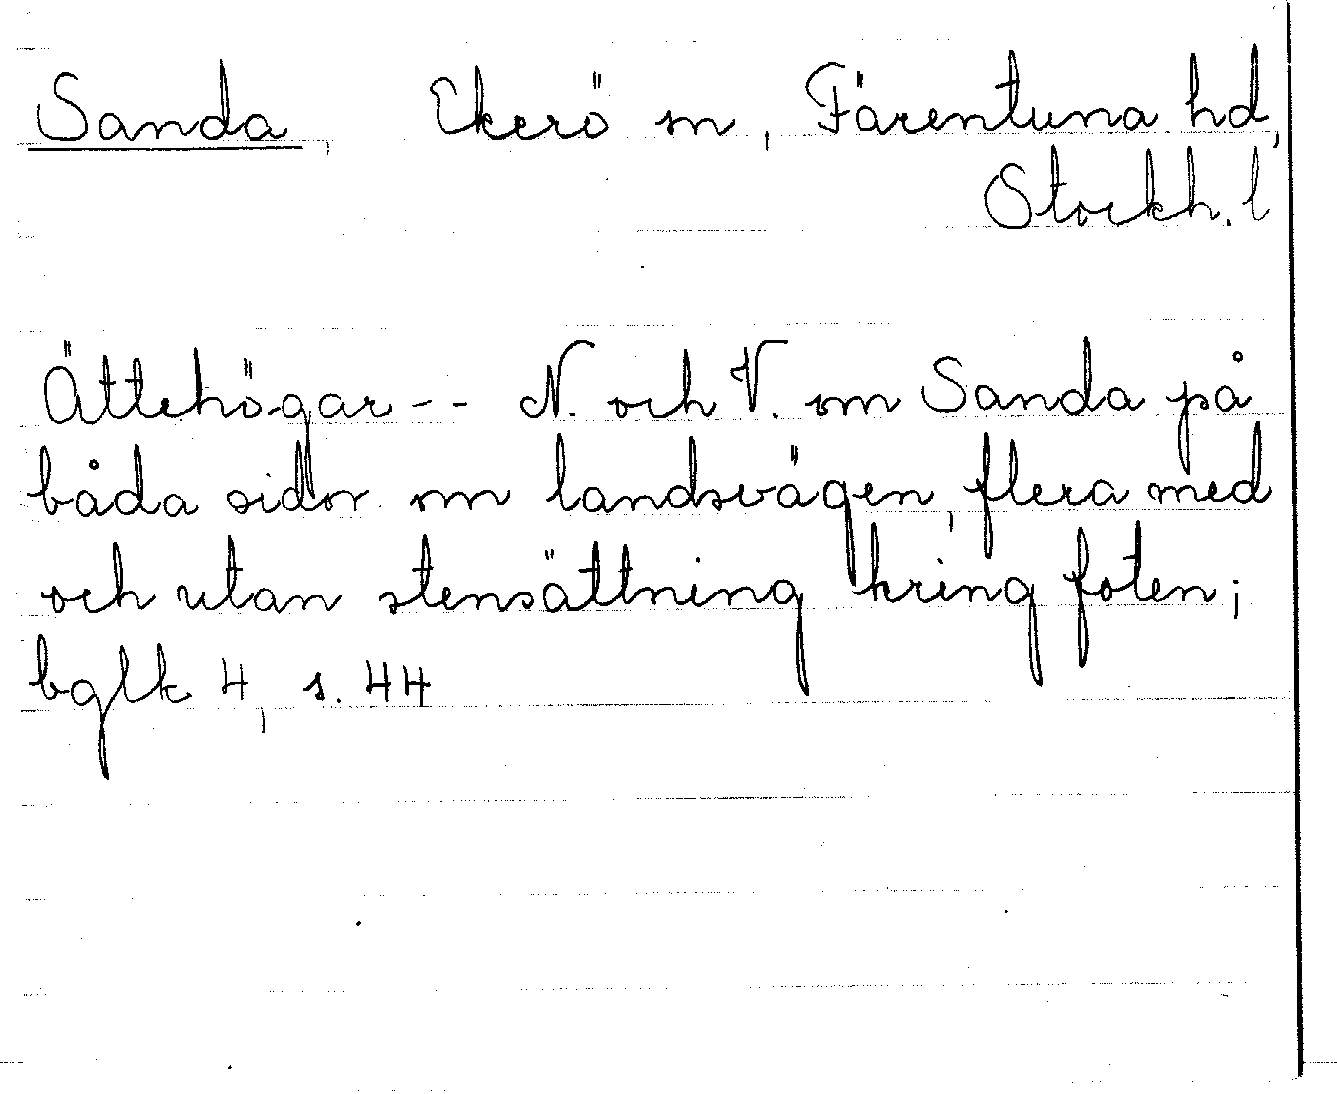 Sanda, Ekerö sn, Färentuna hd,
Stockh. l
Ättehögar -- N. och V. om Sanda på
båda sidor om landsvägen, flera med
och utan stensättning kring foten;
bglk 4, s. 44